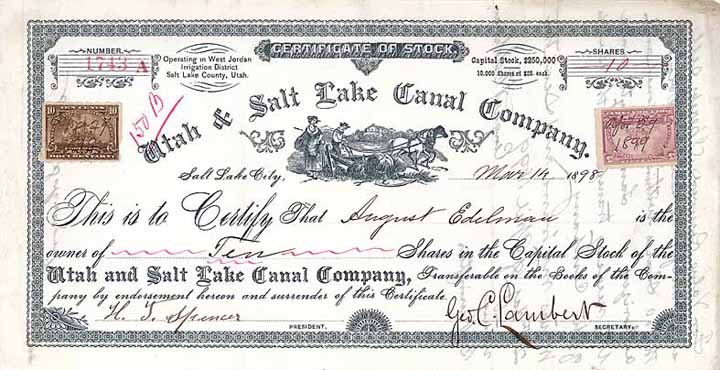 CERTIFICATE OF STOCK
NUMBER
1743 A
Operating in West Jordan
Irrigation District
Salt Lake County, Utah.
Capital Stock, $250,000
10,000 Shares of $25. each.
SHARES
10
150 B
Utah & Salt Lake Canal Company.
10
1899
Salt Lake City, Mar 14 1898
This is to Certify That August Edelman is the
owner of Ten Shares in the Capital Stock of the
Utah and Salt Lake Canal Company, Transferable on the Books of the Com-
pany by endorsement hereon and surrender of this Certificate.
H. T. Spencer
PRESIDENT.
Geo. C. Lambert
SECRETARY.